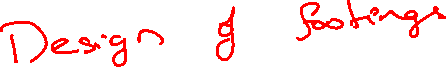 Design of footings